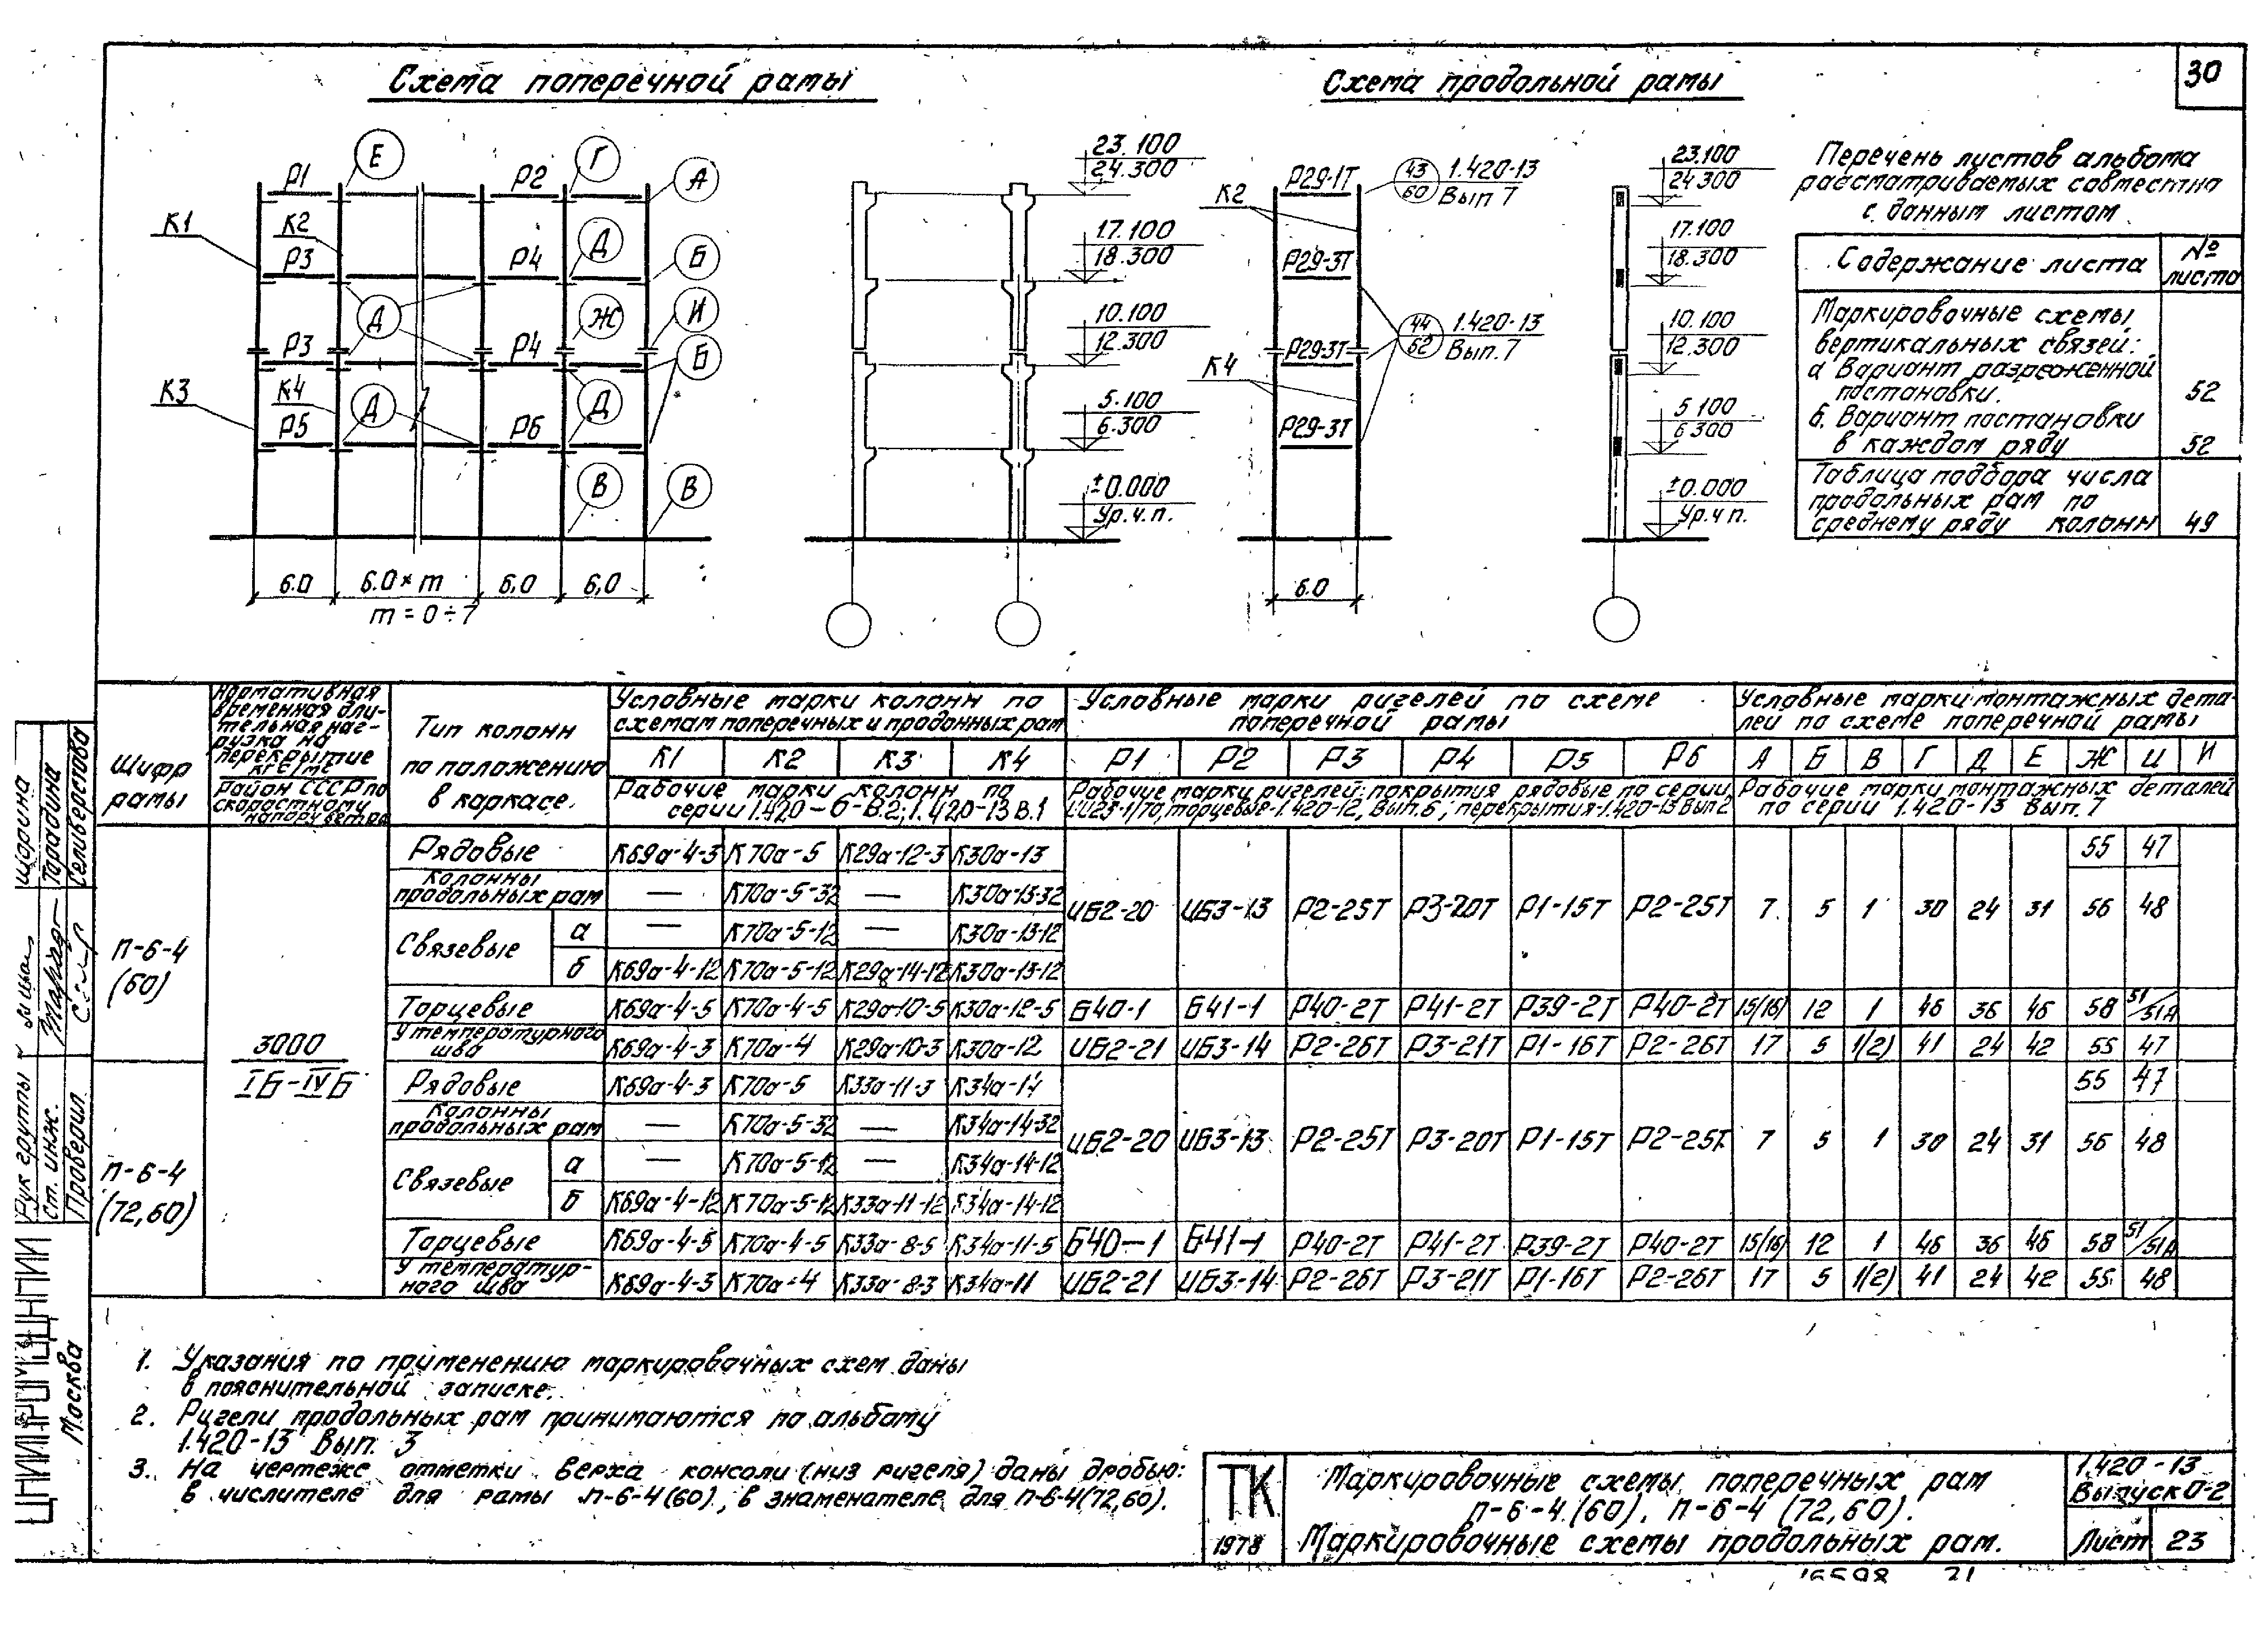 30
Схема поперечной рамы
Схема продольной рамы
Р1
Е
Р2
Г
А
К1
К2
Р3
Р4
Д
Б
Д
Ж
И
Р3
Р4
Б
К3
К4
Д
Д
Р5
Р6
В
В
6.0
6.0×m
6,0
6,0
m = 0÷7
23.100
24.300
17.100
18.300
10.100
12.300
5.100
6.300
±0.000
Ур.ч.п.
Р29-1Т
К2
43
60
1.420-13
Вып 7
Р29-3Т
Р29-3Т
44
62
1.420-13
Вып.7
К4
Р29-3Т
6.0
23.100
24 300
17.100
18.300
10.100
12.300
5 100
6 300
±0.000
Ур.ч п.
Перечень листов альбома
рассматриваемых совместно
с данным листом
Содержание листа
№ листа
Маркировочные схемы
вертикальных связей:
а Вариант разреженной
постановки. 52
б. Вариант постановки
в каждом ряду 52
Таблица подбора числа
продольных рам по
среднему ряду колонн 49
Шифр рамы
Нормативная временная длительная нагрузка на перекрытие кгс/м²
Район СССР по скоростному напору ветра
Тип колонн
по положению
в каркасе.
Условные марки колонн по
схемам поперечных и продонных рам
К1 К2 К3 К4
Рабочие марки колонн по
серии 1.420-6-В.2; 1.420-13 В.1
Условные марки ригелей по схеме
поперечной рамы
Р1 Р2 Р3 Р4 Р5 Р6
Рабочие марки ригелей: покрытия рядовые по серии
ИИ23-1/70, торцевые-1.420-12, Вып.6; перекрытия-1.420-13 Вып 2
Условные марки монтажных дета-
лей по схеме поперечной рамы
А Б В Г Д Е Ж И И
Рабочие марки монтажных деталей
по серии 1.420-13 Вып.7
П-6-4
(60)
3000
IБ-IVБ
Рядовые К69а-4-3 К70а-5 К29а-12-3 К30а-13 55 47
Колонны продольных рам — К70а-5-32 — К30а-13-32
ИБ2-20 ИБ3-13 Р2-25Т Р3-20Т Р1-15Т Р2-25Т 7 5 1 30 24 31 56 48
Связевые
а — К70а-5-12 — К30а-13-12
б К69а-4-12 К70а-5-12 К29а-14-12 К30а-13-12
Торцевые К69а-4-5 К70а-4-5 К29а-10-5 К30а-12-5 Б40-1 Б41-1 Р40-2Т Р41-2Т Р39-2Т Р40-2Т 15/(16) 12 1 46 36 46 58 51/51А
У температурного шва К69а-4-3 К70а-4 К29а-10-3 К30а-12 ИБ2-21 ИБ3-14 Р2-26Т Р3-21Т Р1-16Т Р2-26Т 17 5 1(2) 41 24 42 55 47
П-6-4
(72,60)
Рядовые К69а-4-3 К70а-5 К33а-11-3 К34а-14 55 47
Колонны продольных рам — К70а-5-32 — К34а-14-32
ИБ2-20 ИБ3-13 Р2-25Т Р3-20Т Р1-15Т Р2-25Т 7 5 1 30 24 31 56 48
Связевые
а — К70а-5-12 — К34а-14-12
б К69а-4-12 К70а-5-12 К33а-11-12 К34а-14-12
Торцевые К69а-4-5 К70а-4-5 К33а-8-5 К34а-11-5 Б40-1 Б41-1 Р40-2Т Р41-2Т Р39-2Т Р40-2Т 15/(16) 12 1 46 36 46 58 51/51А
У температур-
ного шва К69а-4-3 К70а-4 К33а-8-3 К34а-11 ИБ2-21 ИБ3-14 Р2-26Т Р3-21Т Р1-16Т Р2-26Т 17 5 1(2) 41 24 42 55 48
1. Указания по применению маркировочных схем даны
в пояснительной записке.
2. Ригели продольных рам принимаются по альбому
1.420-13 Вып. 3
3. На чертеже отметки верха консоли (низ ригеля) даны дробью:
в числителе для рамы П-6-4(60), в знаменателе для П-6-4(72,60).
ТК
1978
Маркировочные схемы поперечных рам
П-6-4.(60), П-6-4 (72,60).
Маркировочные схемы продольных рам.
1.420-13
Выпуск 0-2
Лист 23
ЦНИИПРОМЗДАНИЙ
Москва
Рук группы
Ст. инж.
Проверил
Шорина
Тарадина
Селиверстова